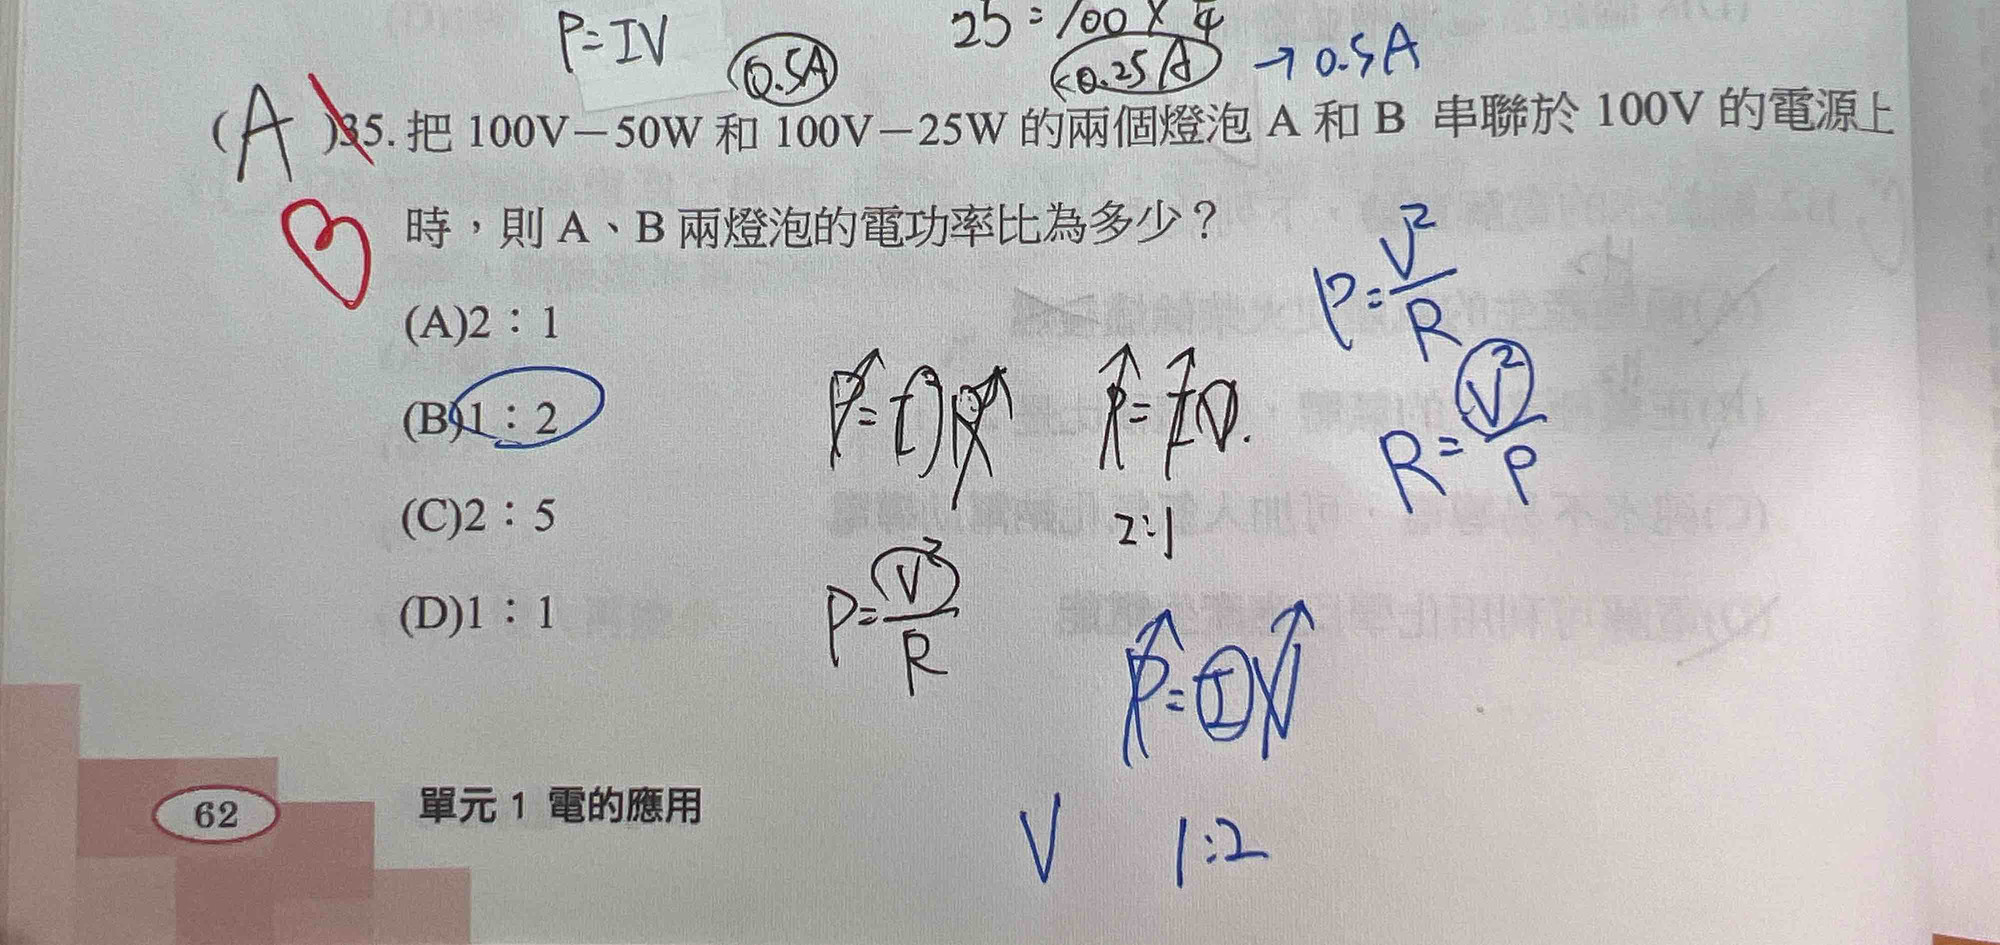 P=IV
25=100×
0.5A
<0.25A → 0.5A
(A)35. 把 100V－50W 和 100V－25W 的兩個燈泡 A 和 B 串聯於 100V 的電源上
時，則 A、B 兩燈泡的電功率比為多少？
P=V²/R
(A)2：1
(B)1：2
P=I²R
P=IV.
R=V²/P
(C)2：5
2:1
(D)1：1
P=V²/R
P=IV
62 單元 1 電的應用
V 1:2